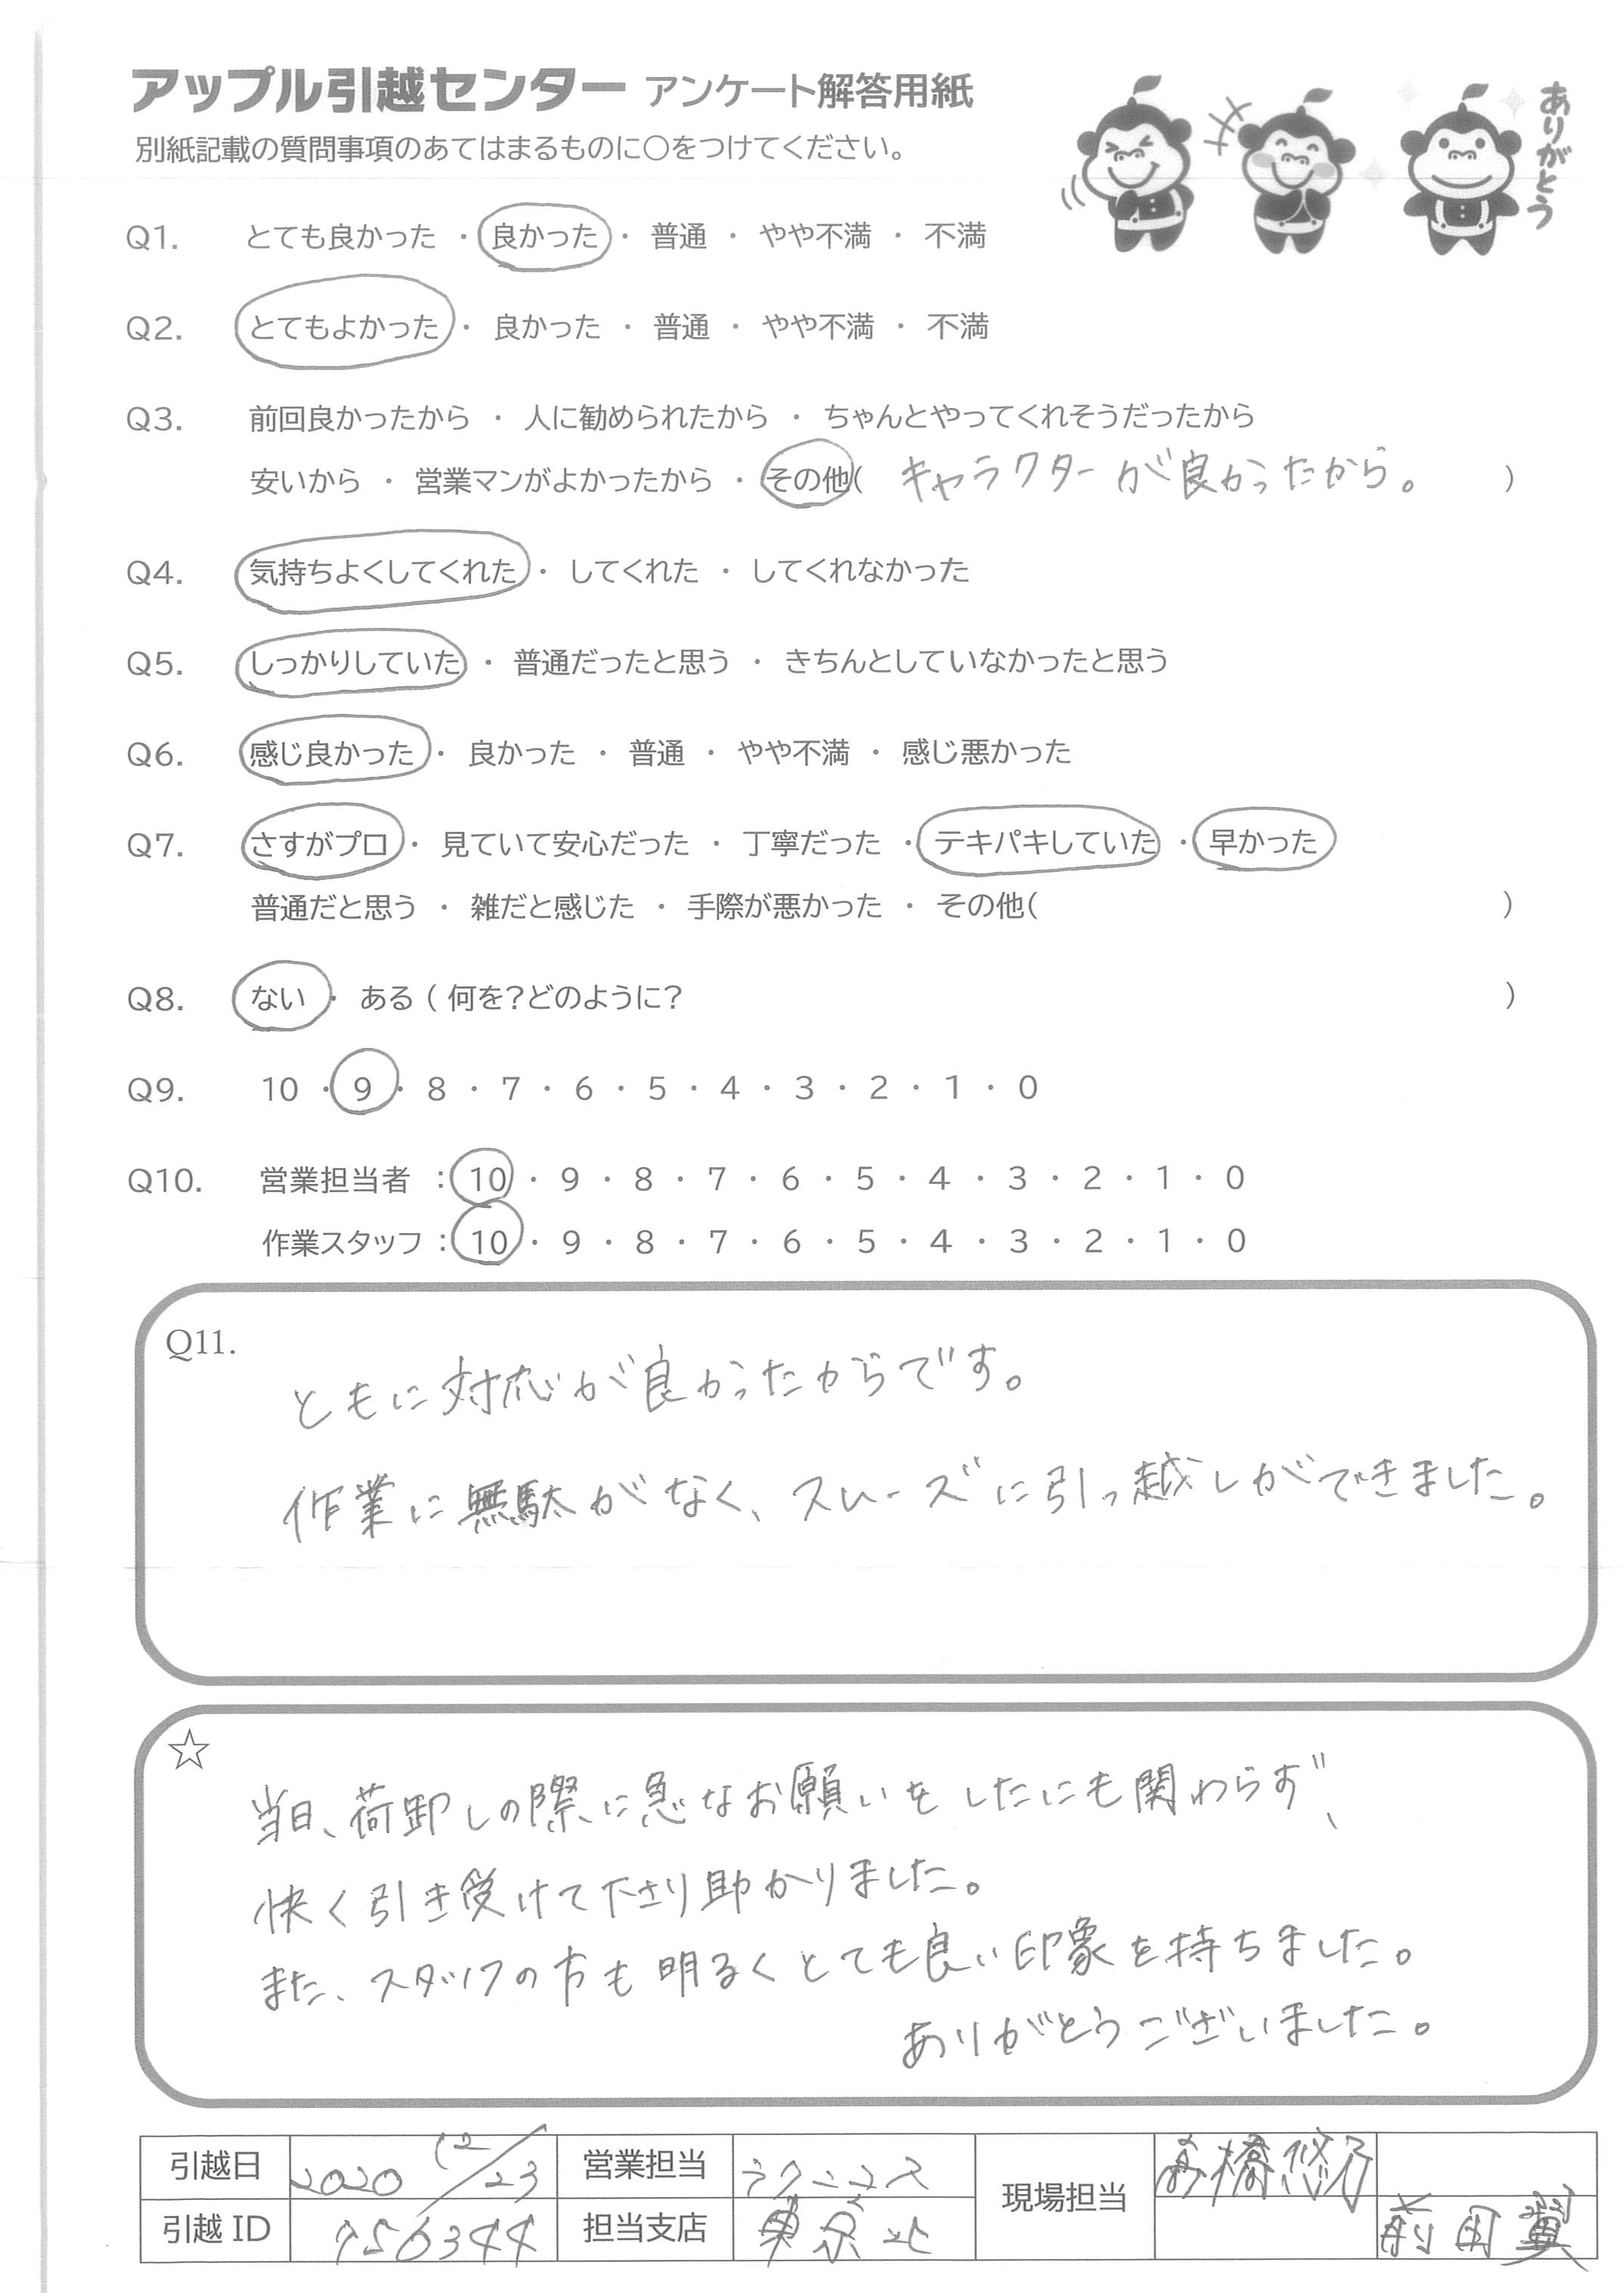 アップル引越センター アンケート解答用紙
別紙記載の質問事項のあてはまるものに○をつけてください。
ありがとう
Q1. とても良かった ・ 良かった ・ 普通 ・ やや不満 ・ 不満
Q2. とてもよかった ・ 良かった ・ 普通 ・ やや不満 ・ 不満
Q3. 前回良かったから ・ 人に勧められたから ・ ちゃんとやってくれそうだったから
安いから ・ 営業マンがよかったから ・ その他( キャラクターが良かったから。 )
Q4. 気持ちよくしてくれた ・ してくれた ・ してくれなかった
Q5. しっかりしていた ・ 普通だったと思う ・ きちんとしていなかったと思う
Q6. 感じ良かった ・ 良かった ・ 普通 ・ やや不満 ・ 感じ悪かった
Q7. さすがプロ ・ 見ていて安心だった ・ 丁寧だった ・ テキパキしていた ・ 早かった
普通だと思う ・ 雑だと感じた ・ 手際が悪かった ・ その他( )
Q8. ない ・ ある ( 何を?どのように? )
Q9. 10 ・ 9 ・ 8 ・ 7 ・ 6 ・ 5 ・ 4 ・ 3 ・ 2 ・ 1 ・ 0
Q10. 営業担当者 : 10 ・ 9 ・ 8 ・ 7 ・ 6 ・ 5 ・ 4 ・ 3 ・ 2 ・ 1 ・ 0
作業スタッフ : 10 ・ 9 ・ 8 ・ 7 ・ 6 ・ 5 ・ 4 ・ 3 ・ 2 ・ 1 ・ 0
Q11.
ともに対応が良かったからです。
作業に無駄がなく、スムーズに引っ越しができました。
☆
当日、荷卸しの際に急なお願いをしたにも関わらず、
快く引き受けて下さり助かりました。
また、スタッフの方も明るくとても良い印象を持ちました。
ありがとうございました。
引越日 2020 12/23 営業担当 現場担当 高橋悠乃
引越ID 756344 担当支店 東京北 前田翼